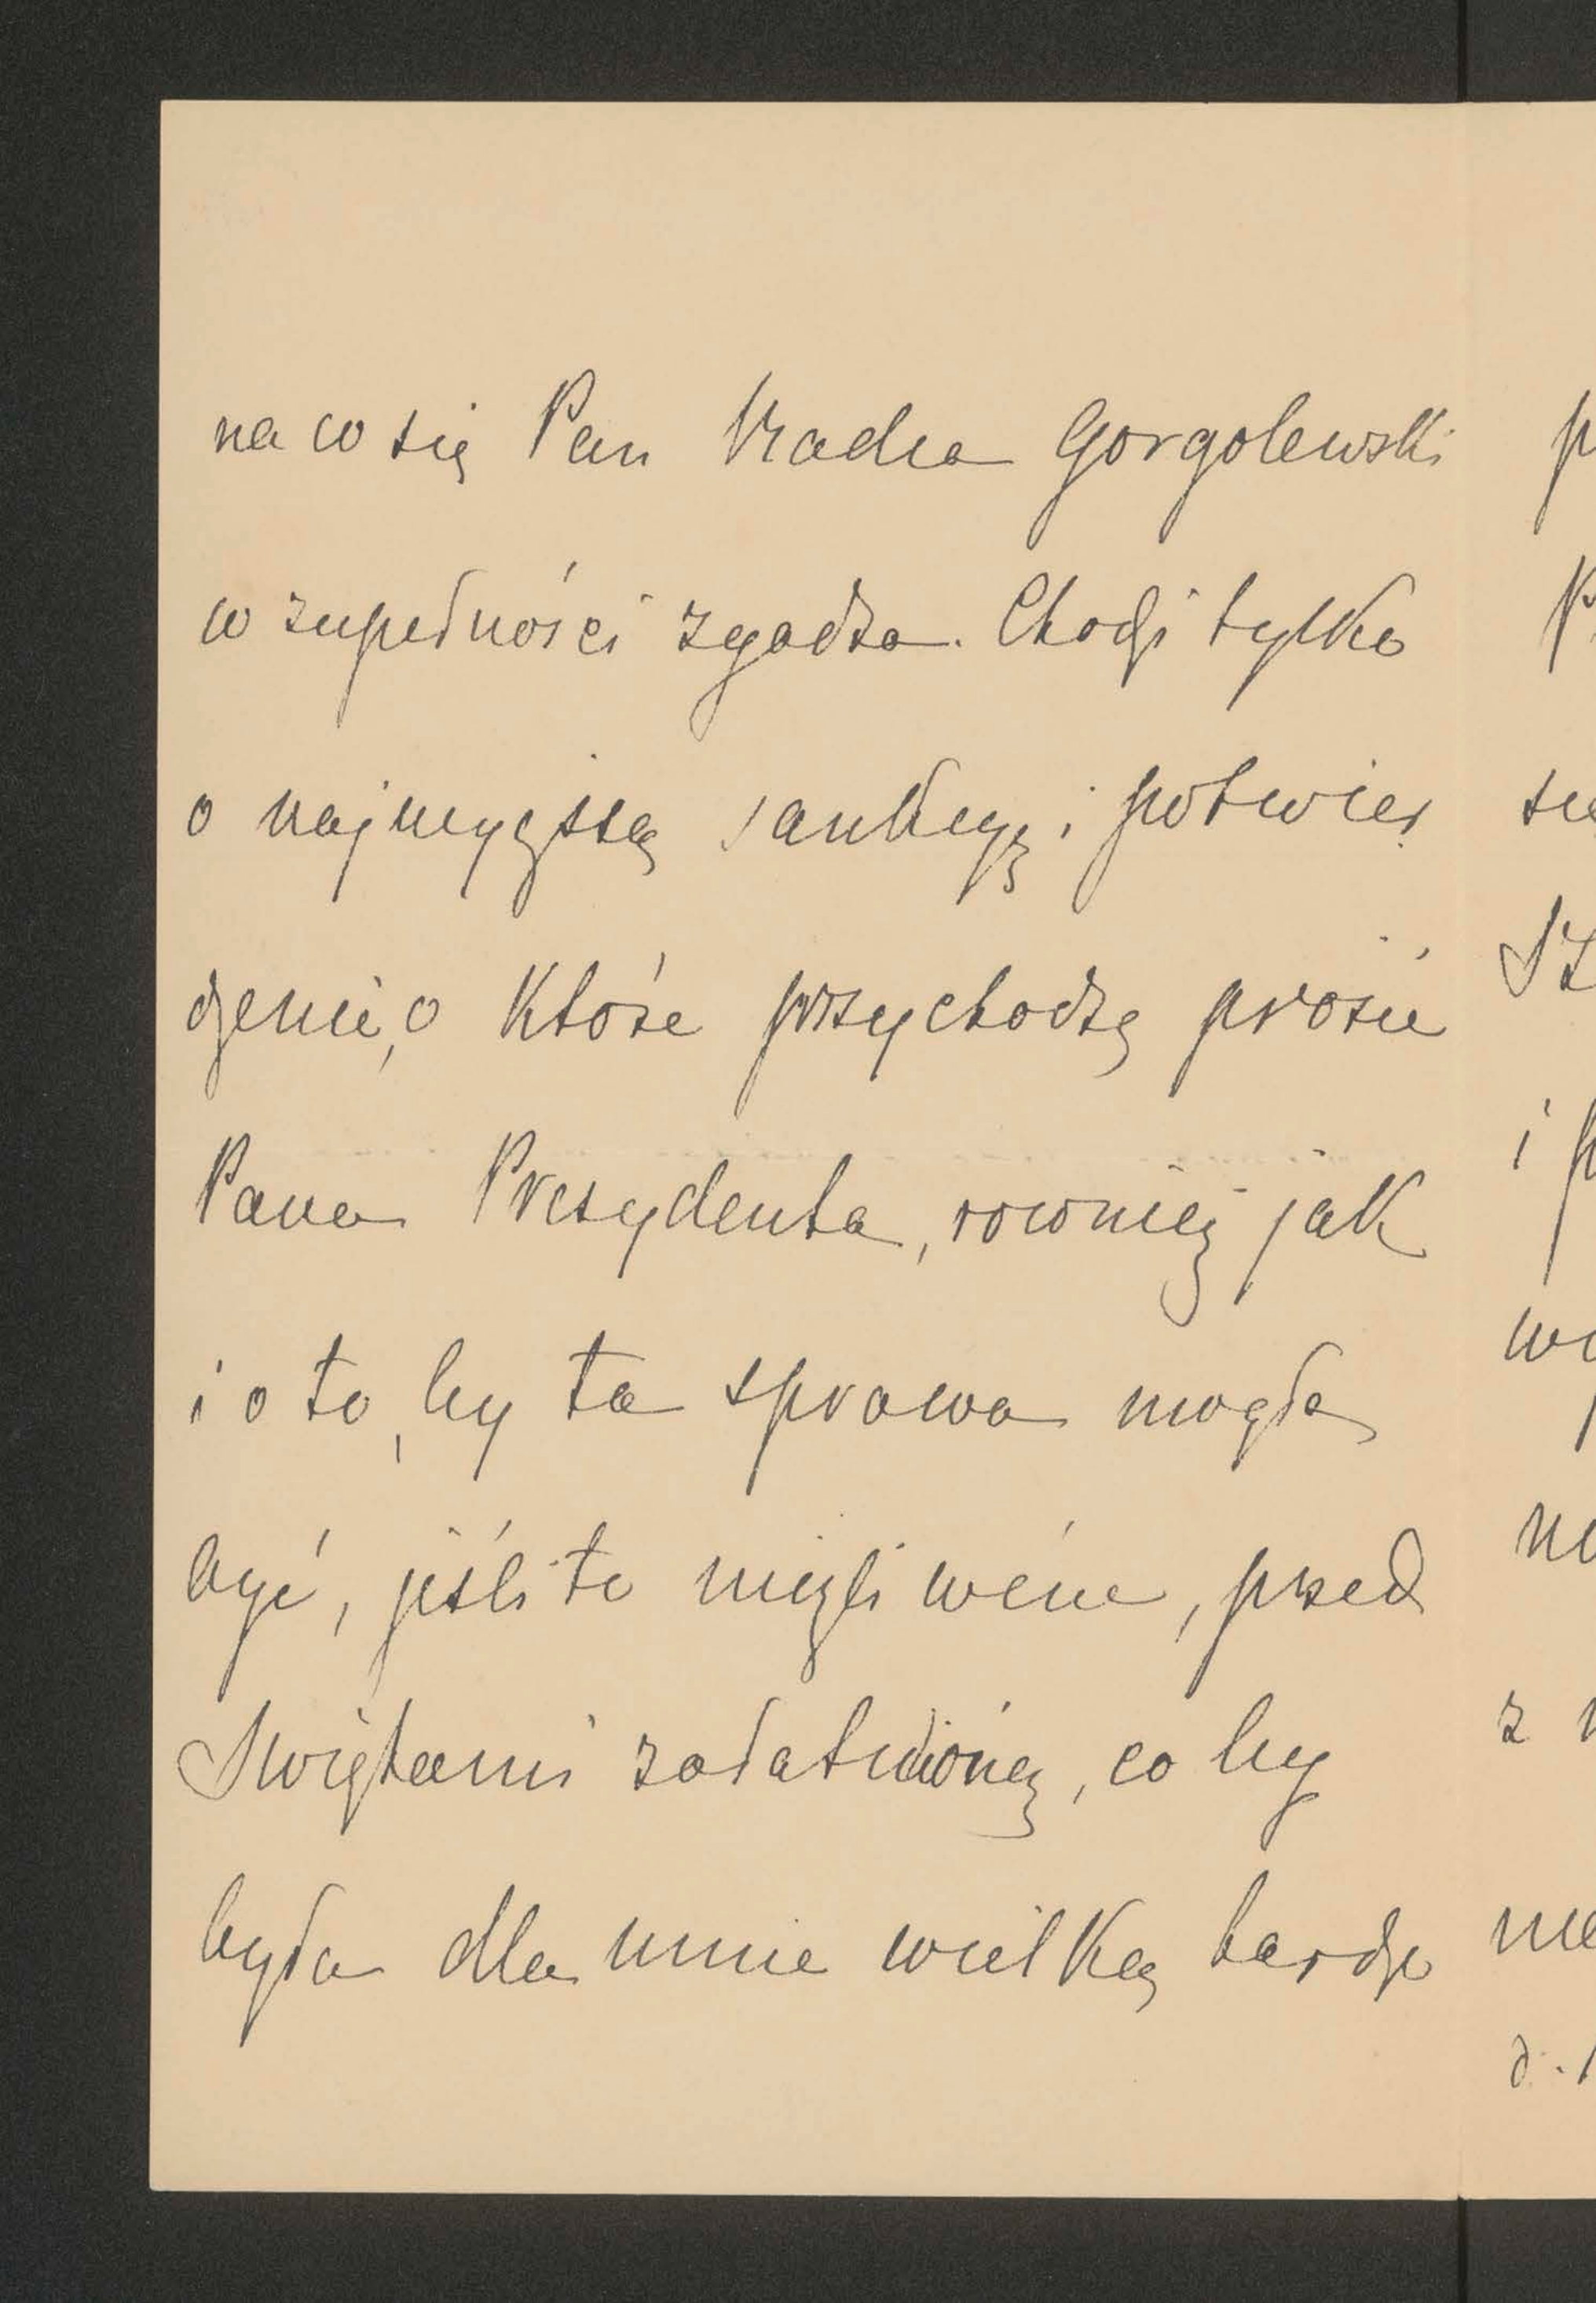 na co się Pan Radca Gorgolewski
w zupełności zgadza. Chodzi tylko
o najwyższą sankcyę i potwier
dzenie, o które przychodzę prosić
Pana Prezydenta, rownież jak
i o to, by ta sprawa mogła
być, jeśli to możliwém, przed
Świętami załatwioną, co by
było dla mnie wielką bardzo